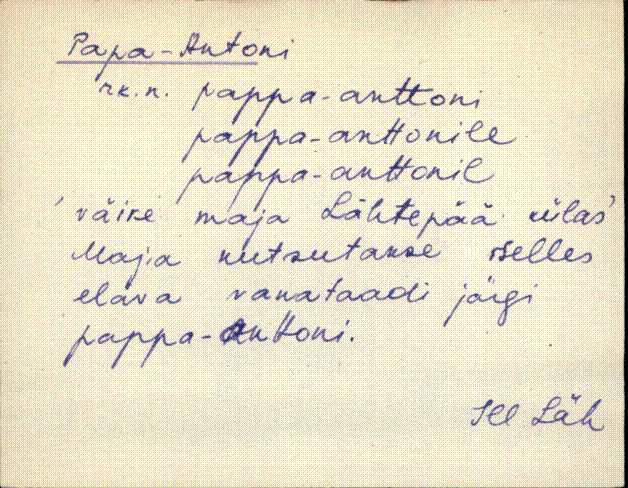 Papa-Antoni
rk.n. pappa-anttoni
pappa-anttonile
pappa-anttonil
'väike maja Lähtepää külas'
Maja kutsutakse selles
elava vanataadi järgi
pappa-anttoni.
Läh